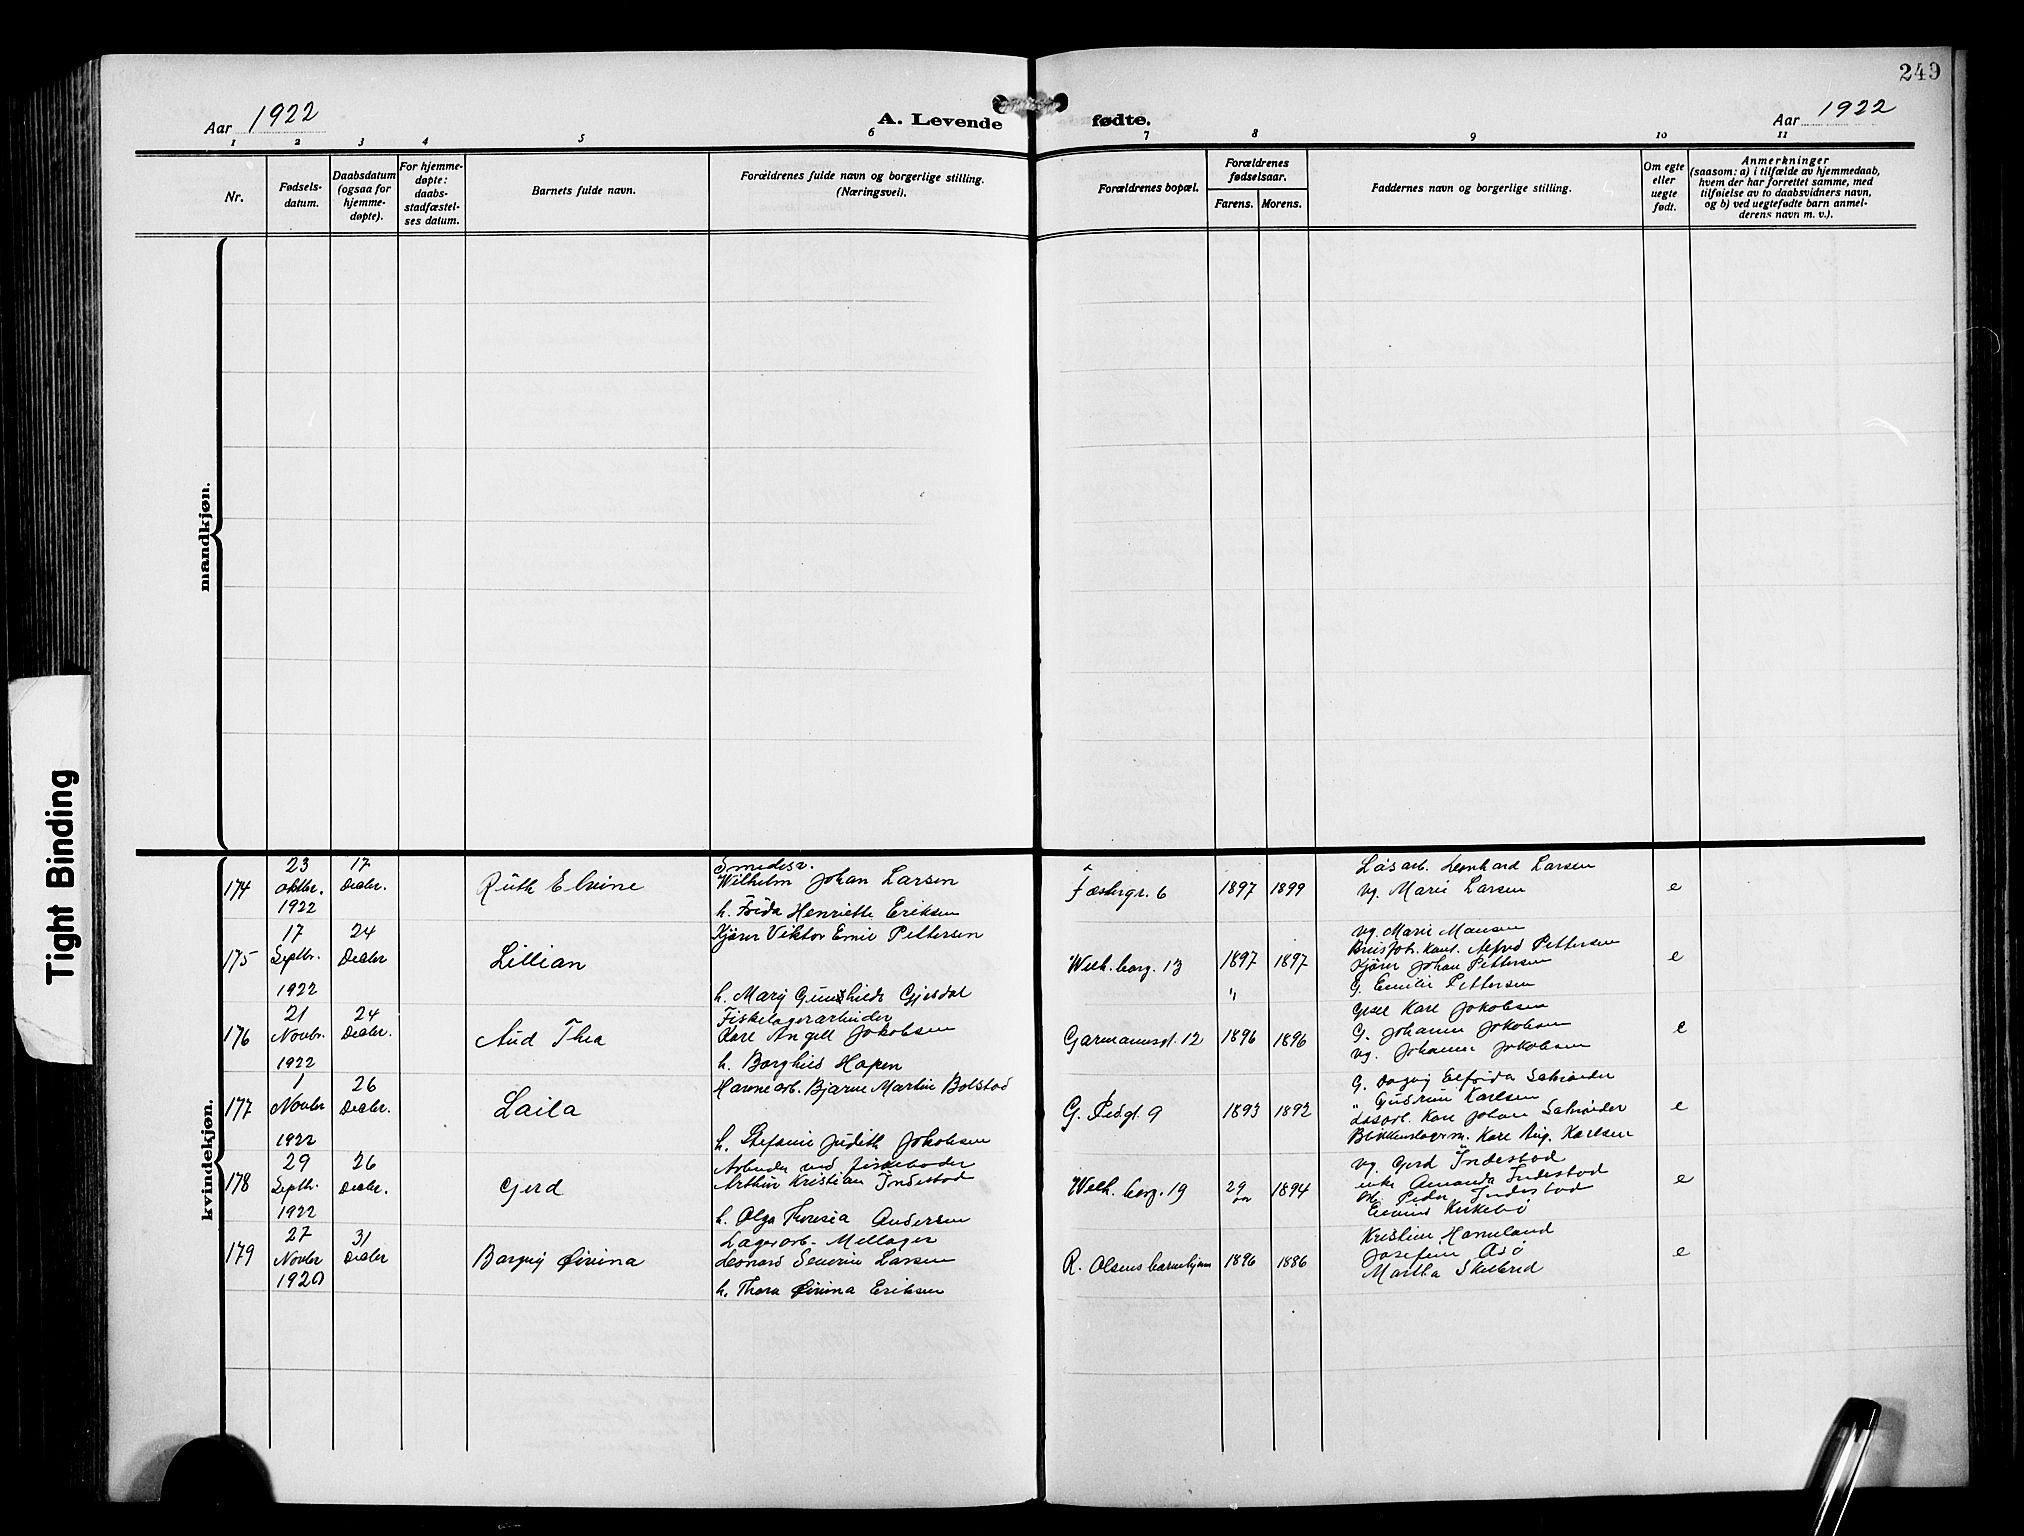 249
Aar 1922
A. Levende fødte.
Aar 1922
1 2 3 4 5 6 7 8 9 10 11
Nr.
Fødsels-
datum.
Daabsdatum
(ogsaa for
hjemme-
døpte).
For hjemme-
døpte:
daabs-
stadfæstel-
ses datum.
Barnets fulde navn.
Forældrenes fulde navn og borgerlige stilling.
(Næringsvei).
Forældrenes bopæl.
Forældrenes
fødselsaar.
Farens. Morens.
Faddernes navn og borgerlige stilling.
Om egte
eller
uegte
født.
Anmerkninger
(saasom: a) i tilfælde av hjemmedaab,
hvem der har forrettet samme, med
tilføielse av to daabsvidners navn,
og b) ved uegtefødte barn anmel-
derens navn m. v.).
mandkjøn.
kvindekjøn.
Tight Binding
174
23
oktbr.
1922
17
Decbr.
Ruth Elvine
Wilhelm Johan Larsen
h. Frida Henriette Eriksen
6
1897 1899
Løsarb. Leonhard Larsen
vg. Marie Larsen
e
175
17
Septbr.
1922
24
Decbr
Lillian
Kjører Viktor Emil Pettersen
h. Mary Gunhilde Gjesdal
Welh. borg. 13
1897 1897
vg. Marie Mansen
Alfred Pettersen
Kjører Johan Pettersen
G. Emilie Pettersen
e
176
21
Novbr.
1922
24
Decbr.
Aud Thea
Fiskelagerarbeider
Karl Angell Jakobsen
h. Borghild Hopen
Garmannsgt. 12
1896 1896
Karl Jakobsen
G. Johanne Jakobsen
vg. Johanne Jakobsen
e
177
1
Novbr
1922
26
Decbr.
Laila
Havnearb. Bjarne Martin Bolstad
h. Stefanie Judith Jakobsen
G. 9
1893 1892
G. Dagny Elfrida Schrøder
" Gudrun Karlsen
Løsarb. Karl Johan Schrøder
Blikkenslagerm. Karl Aug. Karlsen
e
178
29
Septbr.
1922
26
Decbr.
Gerd
Arbeider ved fiskeboder
Arthur Kristian Indestad
h. Olga Theresia Andersen
Welh. borg. 19
29
aar
1894
vg. Gerd Indestad
enke Amanda Indestad
Peder Indestad
Kirkebø
e
179
27
Novbr
1920
31
Decbr
Borgny Øivina
Lagerarb.
Leonard Severin Larsen
h. Thora Øivina Eriksen
R. Olsens barnehjem
1896 1886
Kristine Hameland
Josefine
Martha Skelbred
e